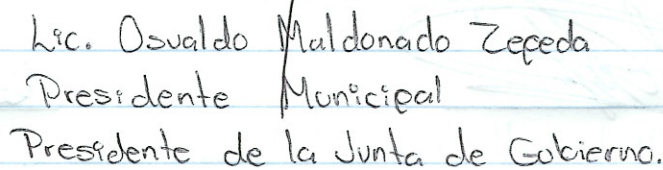 Lic. Osvaldo Maldonado Zepeda
Presidente Municipal
Presidente de la Junta de Gobierno.